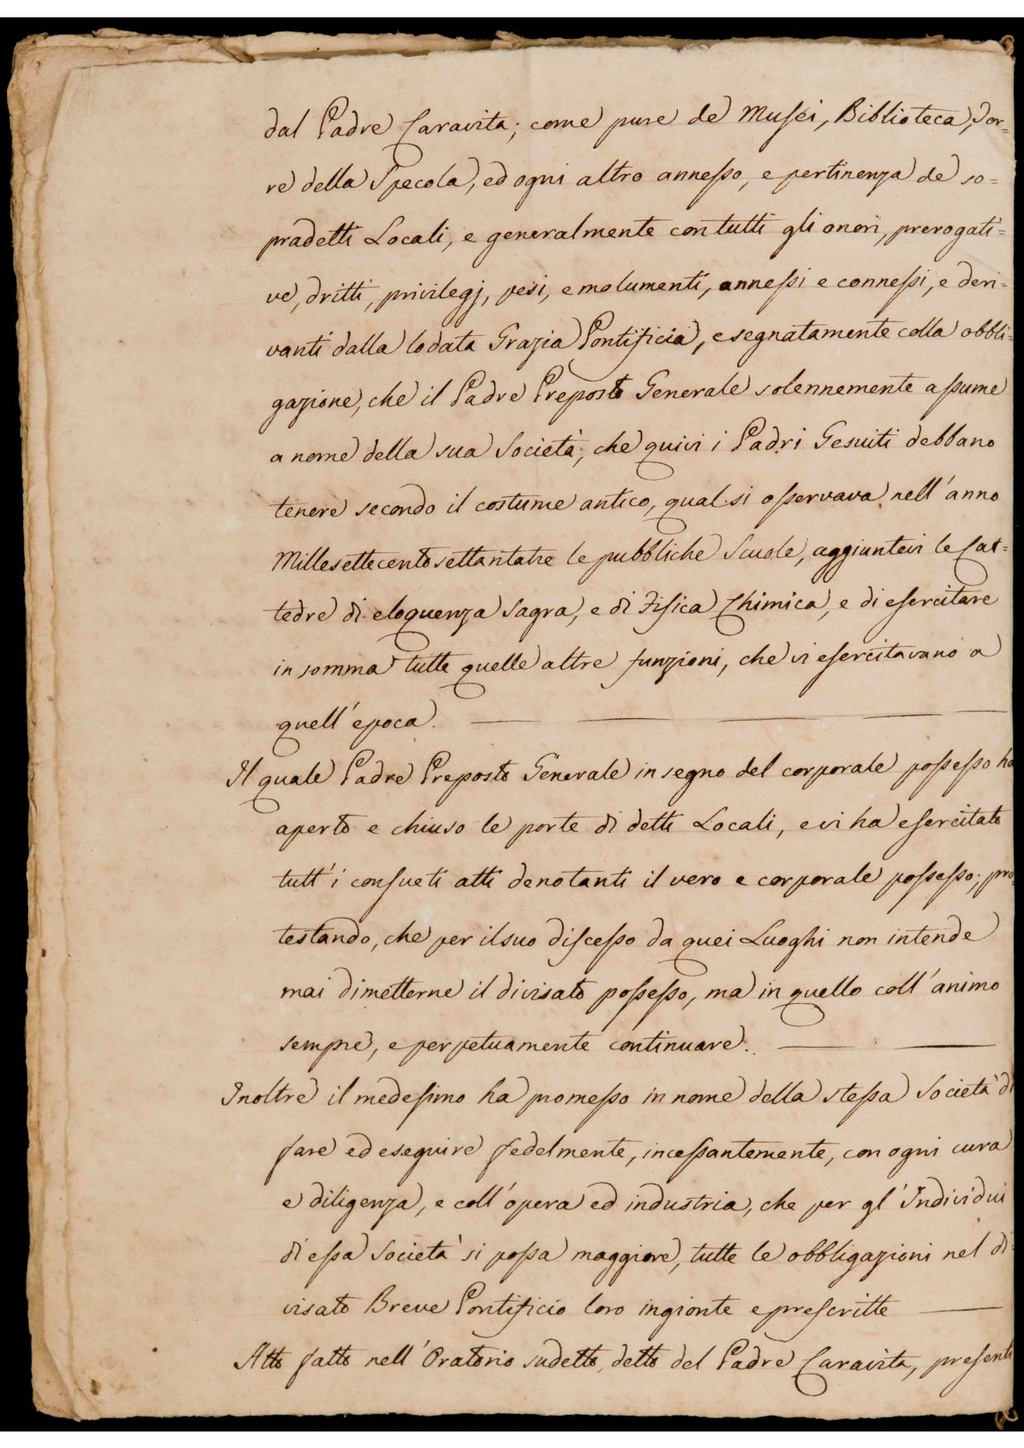 dal Padre Caravita; come pure de' Musei, Biblioteca, Tor=
re della Specola, ed ogni altro annesso, e pertinenza de' so=
pradetti Locali, e generalmente con tutti gli onori, prerogati=
ve, dritti, privilegj, pesi, emolumenti, annessi e connessi, e deri=
vanti dalla lodata Grazia Pontificia, e segnatamente colla obbli=
gazione, che il Padre Preposto Generale solennemente assume
a nome della sua Società, che quivi i Padri Gesuiti debbano
tenere secondo il costume antico, qual si osservava nell'anno
Millesettecentosettantatre le pubbliche Scuole, aggiuntevi le Cat=
tedre di eloquenza Sagra, e di Fisica Chimica, e di esercitare
in somma tutte quelle altre funzioni, che vi esercitavano a
quell'epoca.
Il quale Padre Preposto Generale in segno del corporale possesso ha
aperto e chiuso le porte di detti Locali, e vi ha esercitato
tutt'i consueti atti denotanti il vero e corporale possesso; pro
testando, che per il suo discesso da quei Luoghi non intende
mai dimetterne il divisato possesso, ma in quello coll'animo
sempre, e perpetuamente continuare.
Inoltre il medesimo ha promesso in nome della stessa Società di
fare ed eseguire fedelmente, incessantemente, con ogni cura
e diligenza, e coll'opera ed industria, che per gl'Individui
di essa Società si possa maggiore, tutte le obbligazioni nel di
visato Breve Pontificio loro ingionte e prescritte
Atto fatto nell'Oratorio sudetto, detto del Padre Caravita, presenti